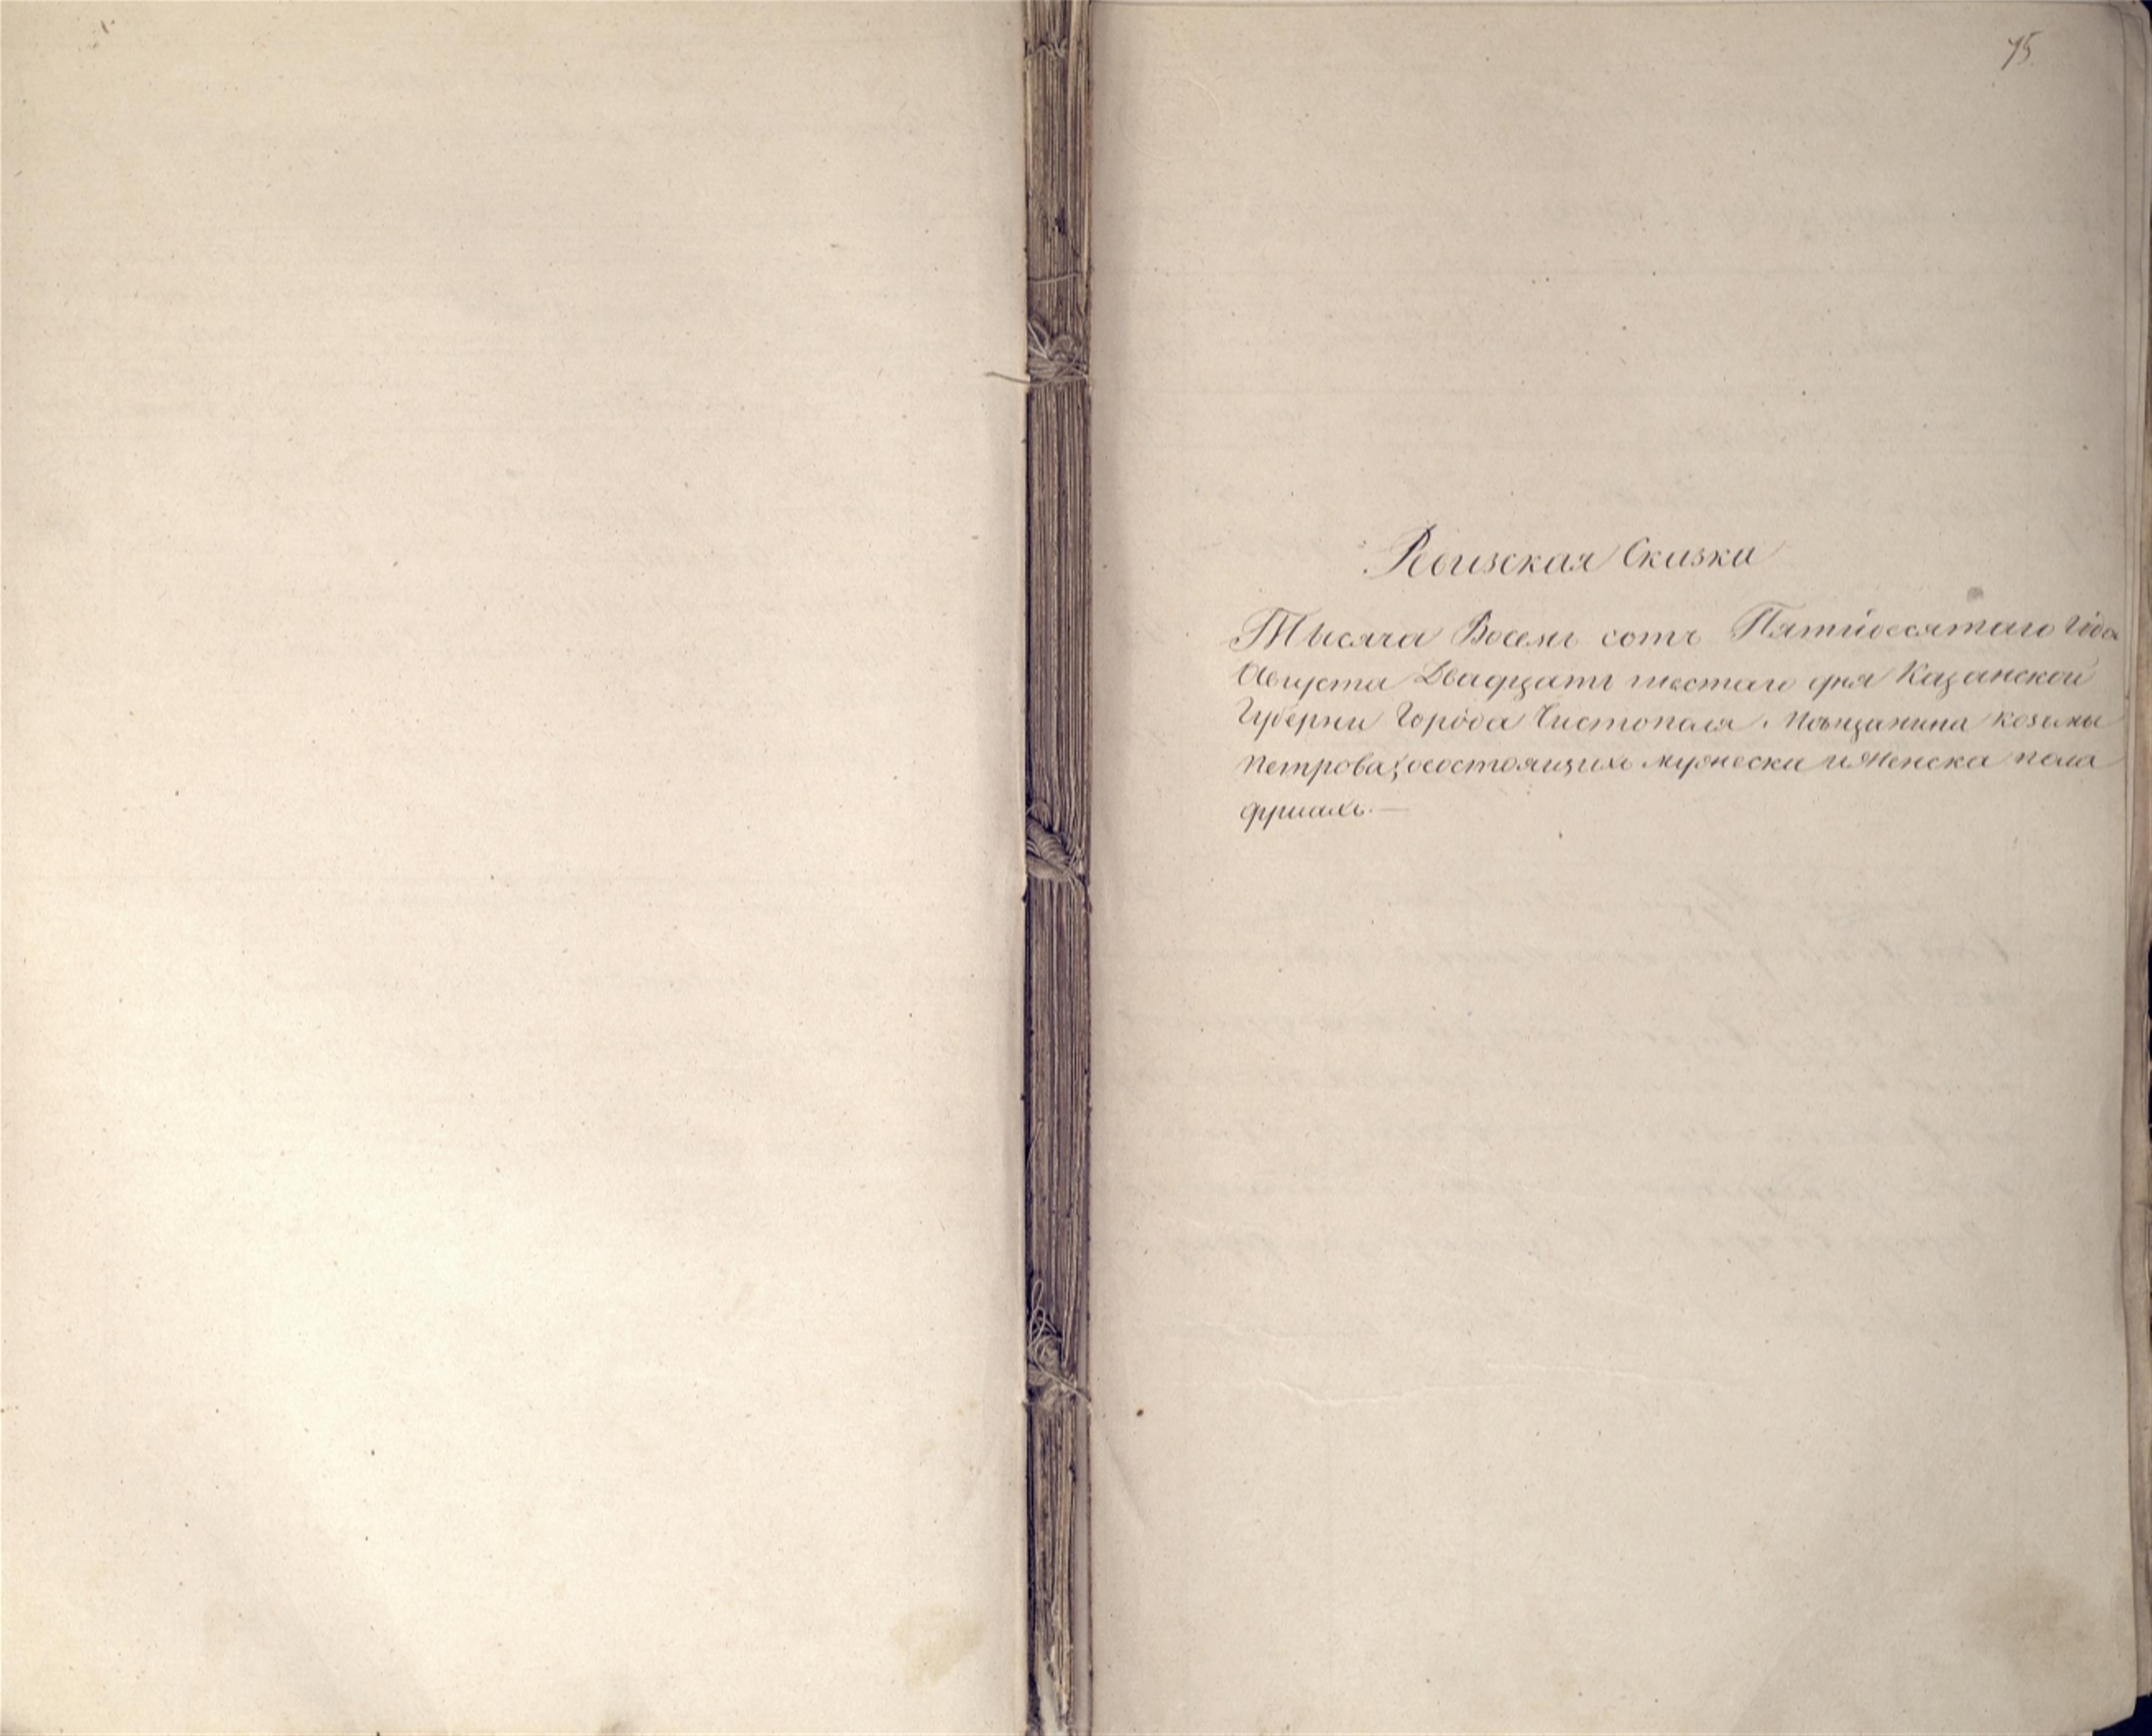 75
Ревизская Сказка
Тысяча Восемь сотъ Пятидесятаго Года
Августа Двадцать шестаго дня Казанской
Губерни Города Чистополя. Мѣщанина козьмы
петрова, осостоящихъ мужеска и женска пола
душахъ.—